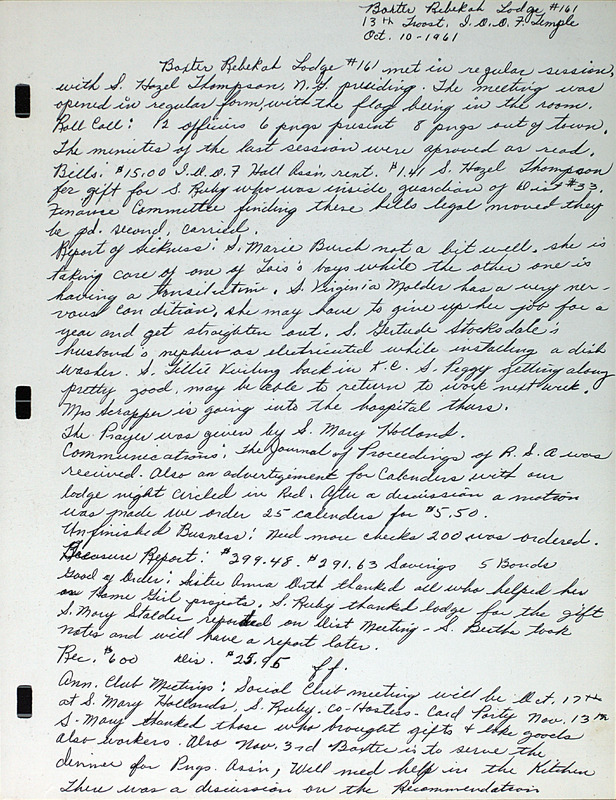 Baxter Rebekah Lodge #161
13th Troost, I.O.O.F. Temple
Oct. 10-1961
Baxter Rebekah Lodge #161 met in regular session,
with S. Hazel Thompson, N.G. presiding. The meeting was
opened in regular form, with the flag being in the room.
Roll Call: 12 officers 6 pngs present 8 pngs out of town.
The minutes of the last session were aproved as read.
Bills: $15.00 I.O.O.F Hall Ass'n, rent. $1.41 S. Hazel Thompson
for gift for S. Ruby who was inside guardian of Dist #33.
Finance Committee finding these bills legal moved they
be pd. second, carried.
Report of Sickness: S. Marie Burch not a bit well. she is
taking care of one of Lois's boys while the other one is
having a. S. Virginia Molder has a very ner-
vous condition, she may have to give up her job for a
year and get straighten out. S. Gertude Stocksdale's
husband's nephew as electricuted while installing a dish
washer. S. Tillie back in K.C. S. Peggy getting along
pretty good, may be able to return to work next week.
Mrs Scrapper is going into the hospital thurs.
The Prayer was given by S. Mary Holland.
Communications: The Journal of Proceedings of R.S.A was
received. Also an advertizement for Calenders with our
lodge night circled in Red. After a discussion a motion
was made we order 25 calenders for $5.50.
Unfinished Busness: Need more checks 200 was ordered.
Report: $299.48. $291.63 Savings 5 Bonds
Good of Order: Sister Anna Orth thanked all who helped her
on Home Girl projects, S. Ruby thanked lodge for the gift
S. Mary Stalder reported on Dist Meeting - S. Bertha took
notes and will have a report later.
Rec. $6.00 Dis. $25.95
Ann. Club Meetings: Social Club meeting will be Oct. 17th
at S. Mary Hollands, S. Ruby. Co-Hostess. Card Party Nov. 13th
S. Mary thanked those who brought gifts + bake goods
also workers. Also Nov. 3rd Baxter is to serve the
dinner for Pngs. Ass'n, Will need help in the Kitchen
There was a discussion on the Recommendation